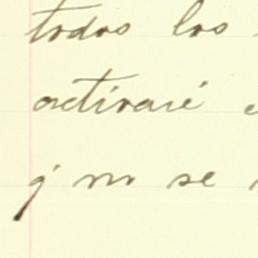 todos los
activaré
y no se